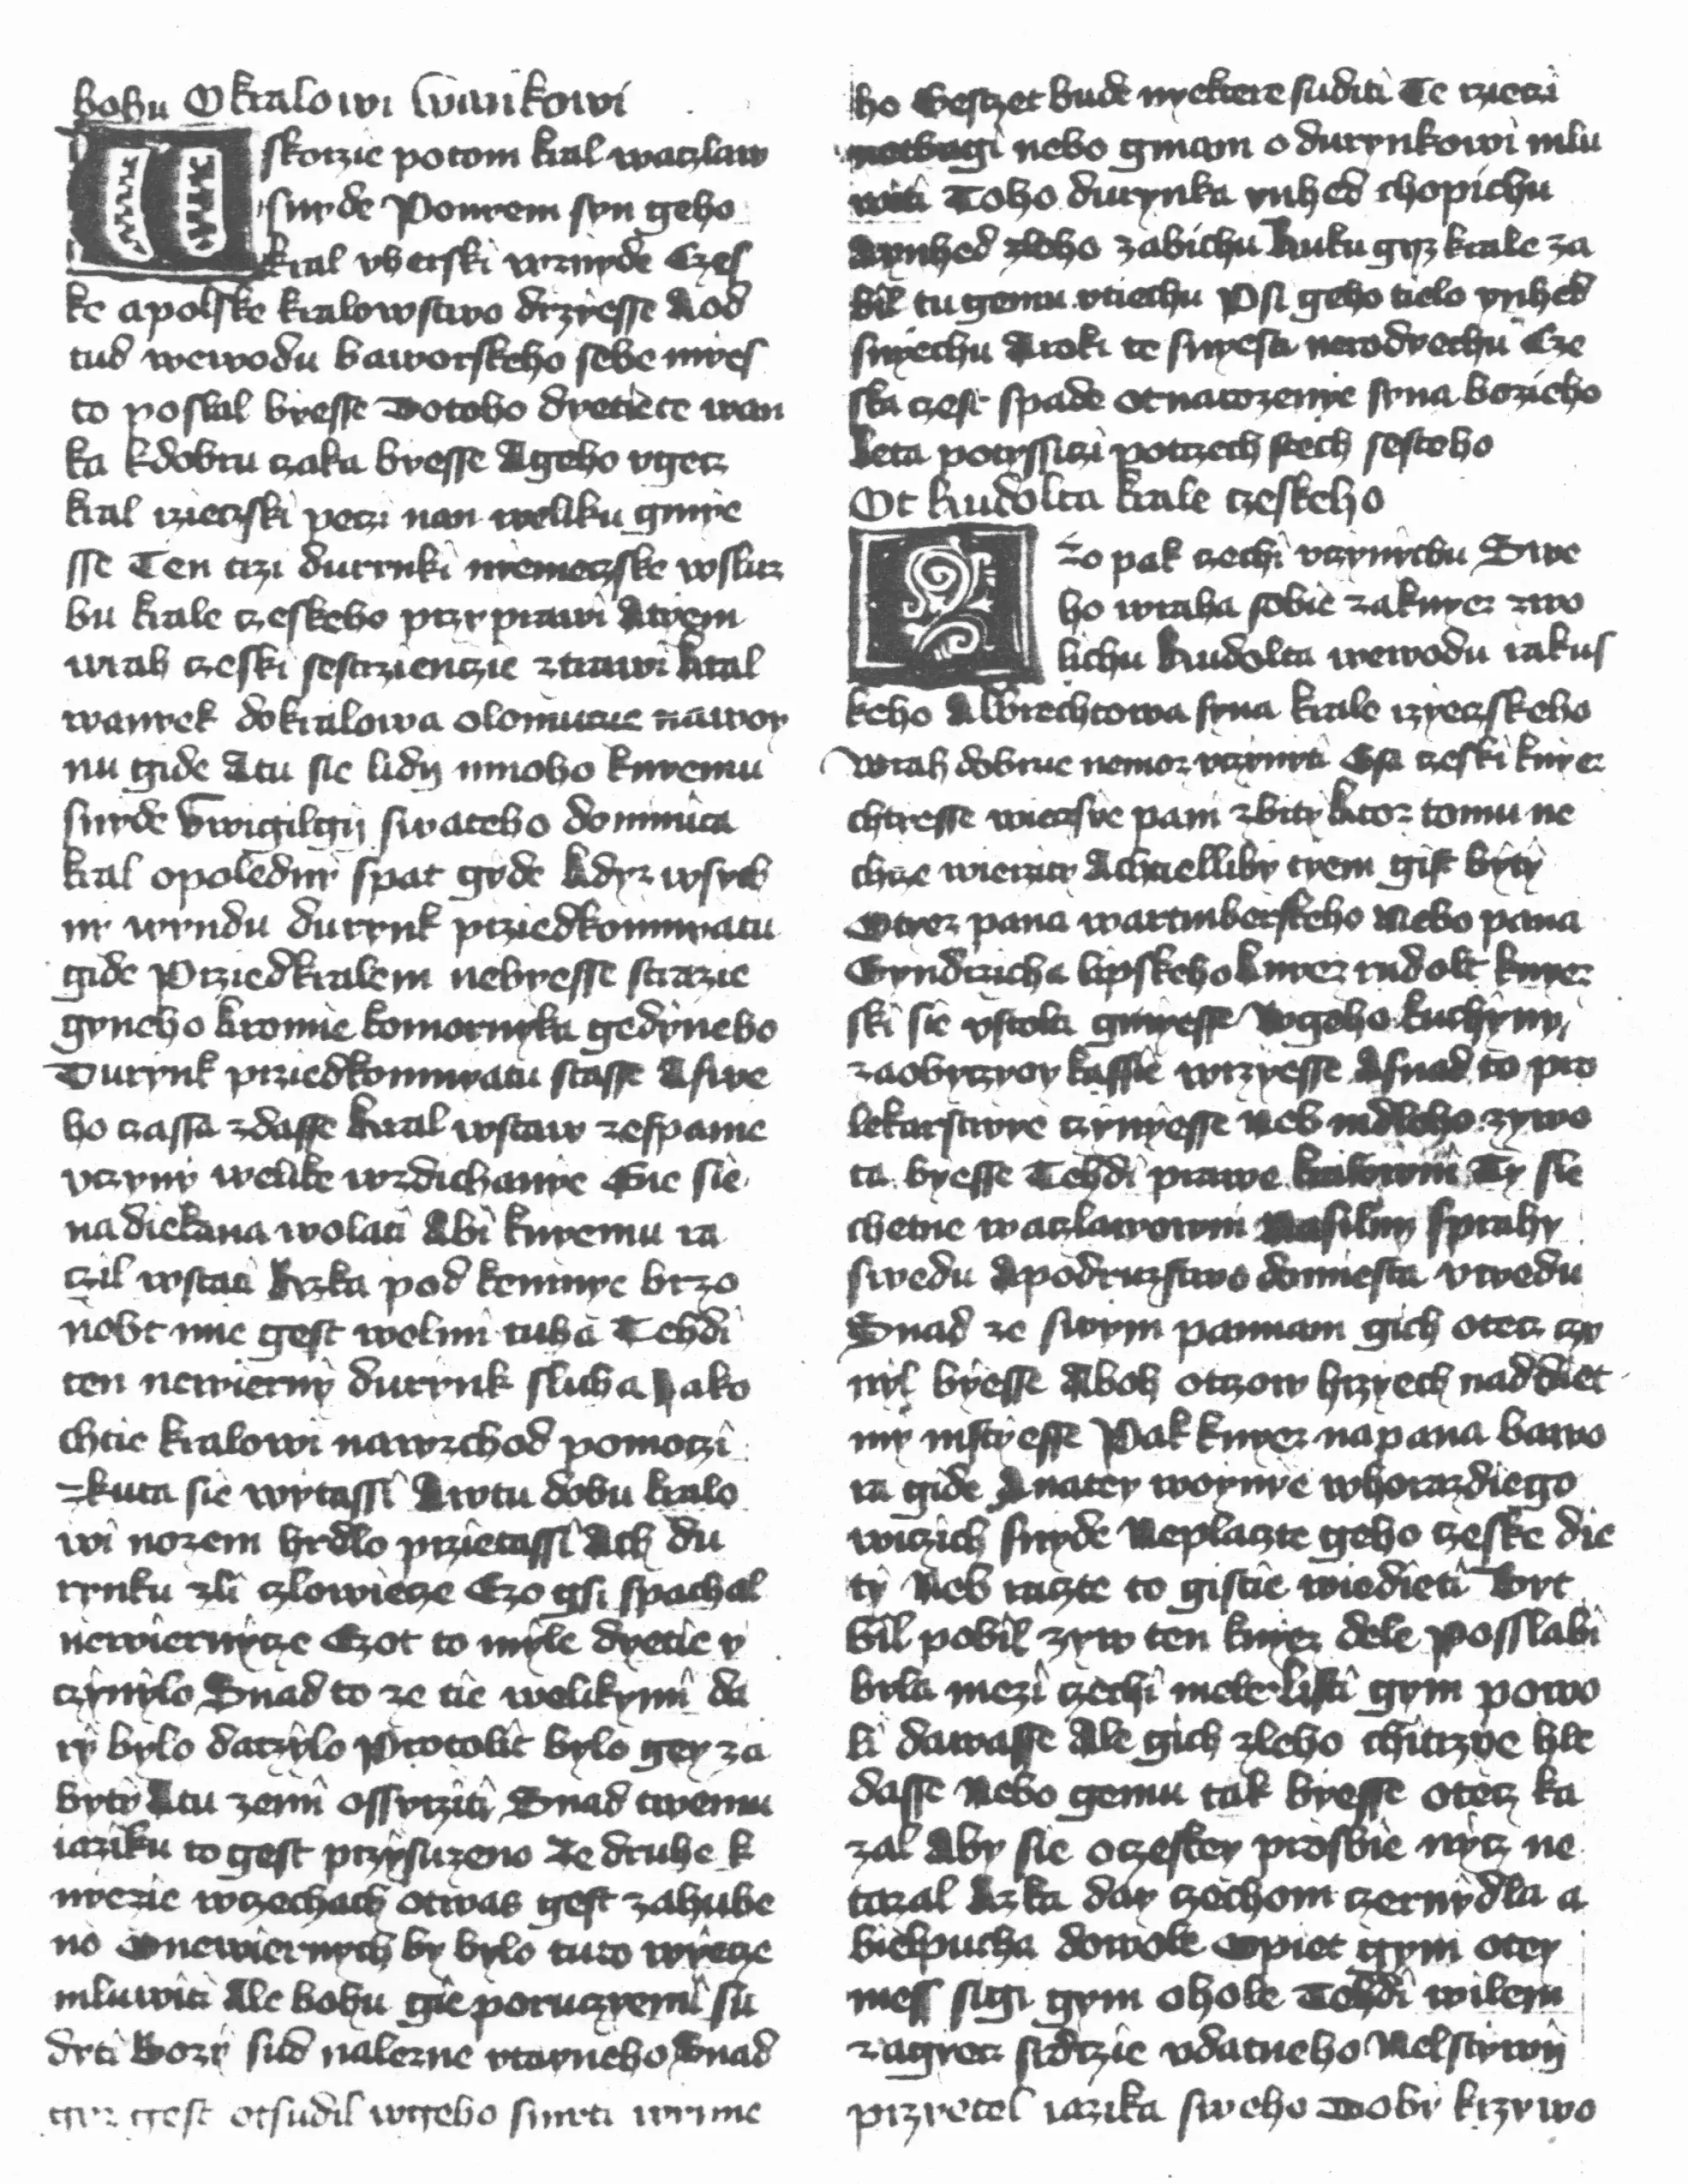 bohu O kralowi wankowi
W skorzie potom kral waczlaw
snyde Ponyem syn geho
kral vherski wznyde Czes
ke apolske kralowstwo drzyesse Aod
tud wewodu baworskeho sebe myes
to poslal byesse Dotoho dyetiete wan
ka kdobru czaka byesse Ageho vgecz
kral rzieczski peczi nan weliku gmye
sse Ten trzi durynki niemeczske wsluz
bu krale czeskeho przyprawi Atyem
wrah czeski sestrzienczie ztrawi kral
wanyek dokralowa olomucze nawoy
nu gide Atu sie lidij mnoho knyemu
snyde Vwigilgij swateho dominica
kral opoledny spat gyde kdyz wsych
ny wyndu durynk prziedkomnatu
gide Prziedkralem nebyesse strazie
gyneho kromie komornyka gedyneho
Durynk prziedkomnatu stasse Aswe
ho czassa zdasse kral wstaw zespanie
vczyny welike wzdichanye Gie sie
nadiekana wolati Abi knyemu ra
czil wstati Rzka pod kemnye brzo
nebt mie gest welmi tuha Tehdi
ten newierny durynk sluha Jako
chtie kralowi nawzchod pomoczi
zkuta sie wytassi Awtu dobu kralo
wi nozem hrdlo przietassi Ach du
rynku zli czlowiecze Czo gsi spachal
newiernycze Czot to myle dyetie v
czynylo Snad to ze tie welikymi da
ry bylo darzylo Protolit bylo gey za
byty Atu zemi ossyrziti Snad twemu
iaziku to gest przysuzeno Ze druhe k
nyezie wczechach otwas gest zahube
no Onewiernych by bylo tuto wyecze
mluwiti Ale bohu gie poruczyemi su
diti Bozy sud nalezne vtayneho Snad
gyz gest otsudil wgeho smrti wynne
ho Gestzet bude nyektere suditi Te rzieczi
nechagi nebo gmam o durynkowi mlu
witi Toho durynka ynhed chopichu
Aynhed zleho zabichu Ruku gyz krale za
bil tu gemu vtiechu Psi geho tielo ynhed
snyechu Aroki te snyesta nerodyechu Cze
ska czest spade otnarozenye syna bozieho
Leta potyssiczi potrzech stech sesteho
Ot Rudolta krale czeskeho
Czo pak czechi vczynychu Swe
ho wraha sobie zaknyez zwo
lichu Rudolta wewodu rakus
keho Albrechtowa syna krale rzyeczskeho
Wrah dobrue nemoz vczynyti Gsa czeski knyez
chtyesse wieczsye pani zbiti ktoz tomu ne
chcze wierzity Achtielliby tyem gist byty
Otyez pana wartmberskeho Nebo pana
Gyndrzicha lipskeho knyez rudolt knyez
ski sie vstola gmyesse Wgeho kuchyny
zaobyczyoy kassie wrzyesse Asnad to pro
lekarstwye czynyesse Neb mdleho zywo
ta byesse Tehdi prawe kralowni Ty sle
chetne waczlawowni Nasilny sprahy
swedu Apodruzstwo domiesta vwedu
Snad ze swym pannam gich otecz czy
nyl byesse Aboh otczow hrzyech nad diet
my mstyesse Pak knyez napana bawo
ra gide Anatey woynye whorazdiego
wiczich snyde Neplaczte geho czeske die
ty Neb raczte to gistie wiedieti Byt
bil pobil zyw ten knyez dele Posslabi
byla mezi czechi mele listi gym powo
li dawasse Ale gich zleho chitrzye hle
dasse Nebo gemu tak byesse otecz ka
zal Aby sie oczeskey prosbie nycz ne
tazal Rzka day czechom czernydla a
bielpucha dowole Opiet gym otey
mess sigi gym ohole Tehdi wilem
zagyecz srdczie vdatneho Nelstywy
przyetel iazika sweho Doby krzywo